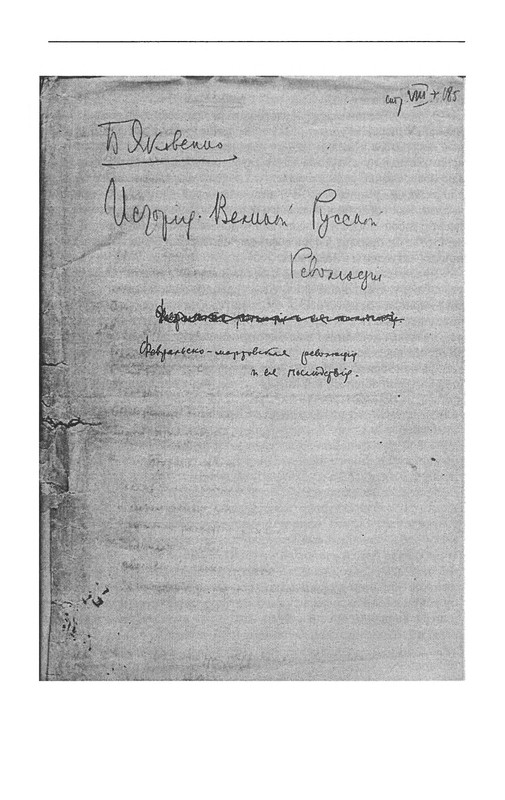 стр. VIII + 185
Б Яковенко
Исторія Великой Русской
Революціи
Февральско-мартовская революція
и ея послѣдствія.